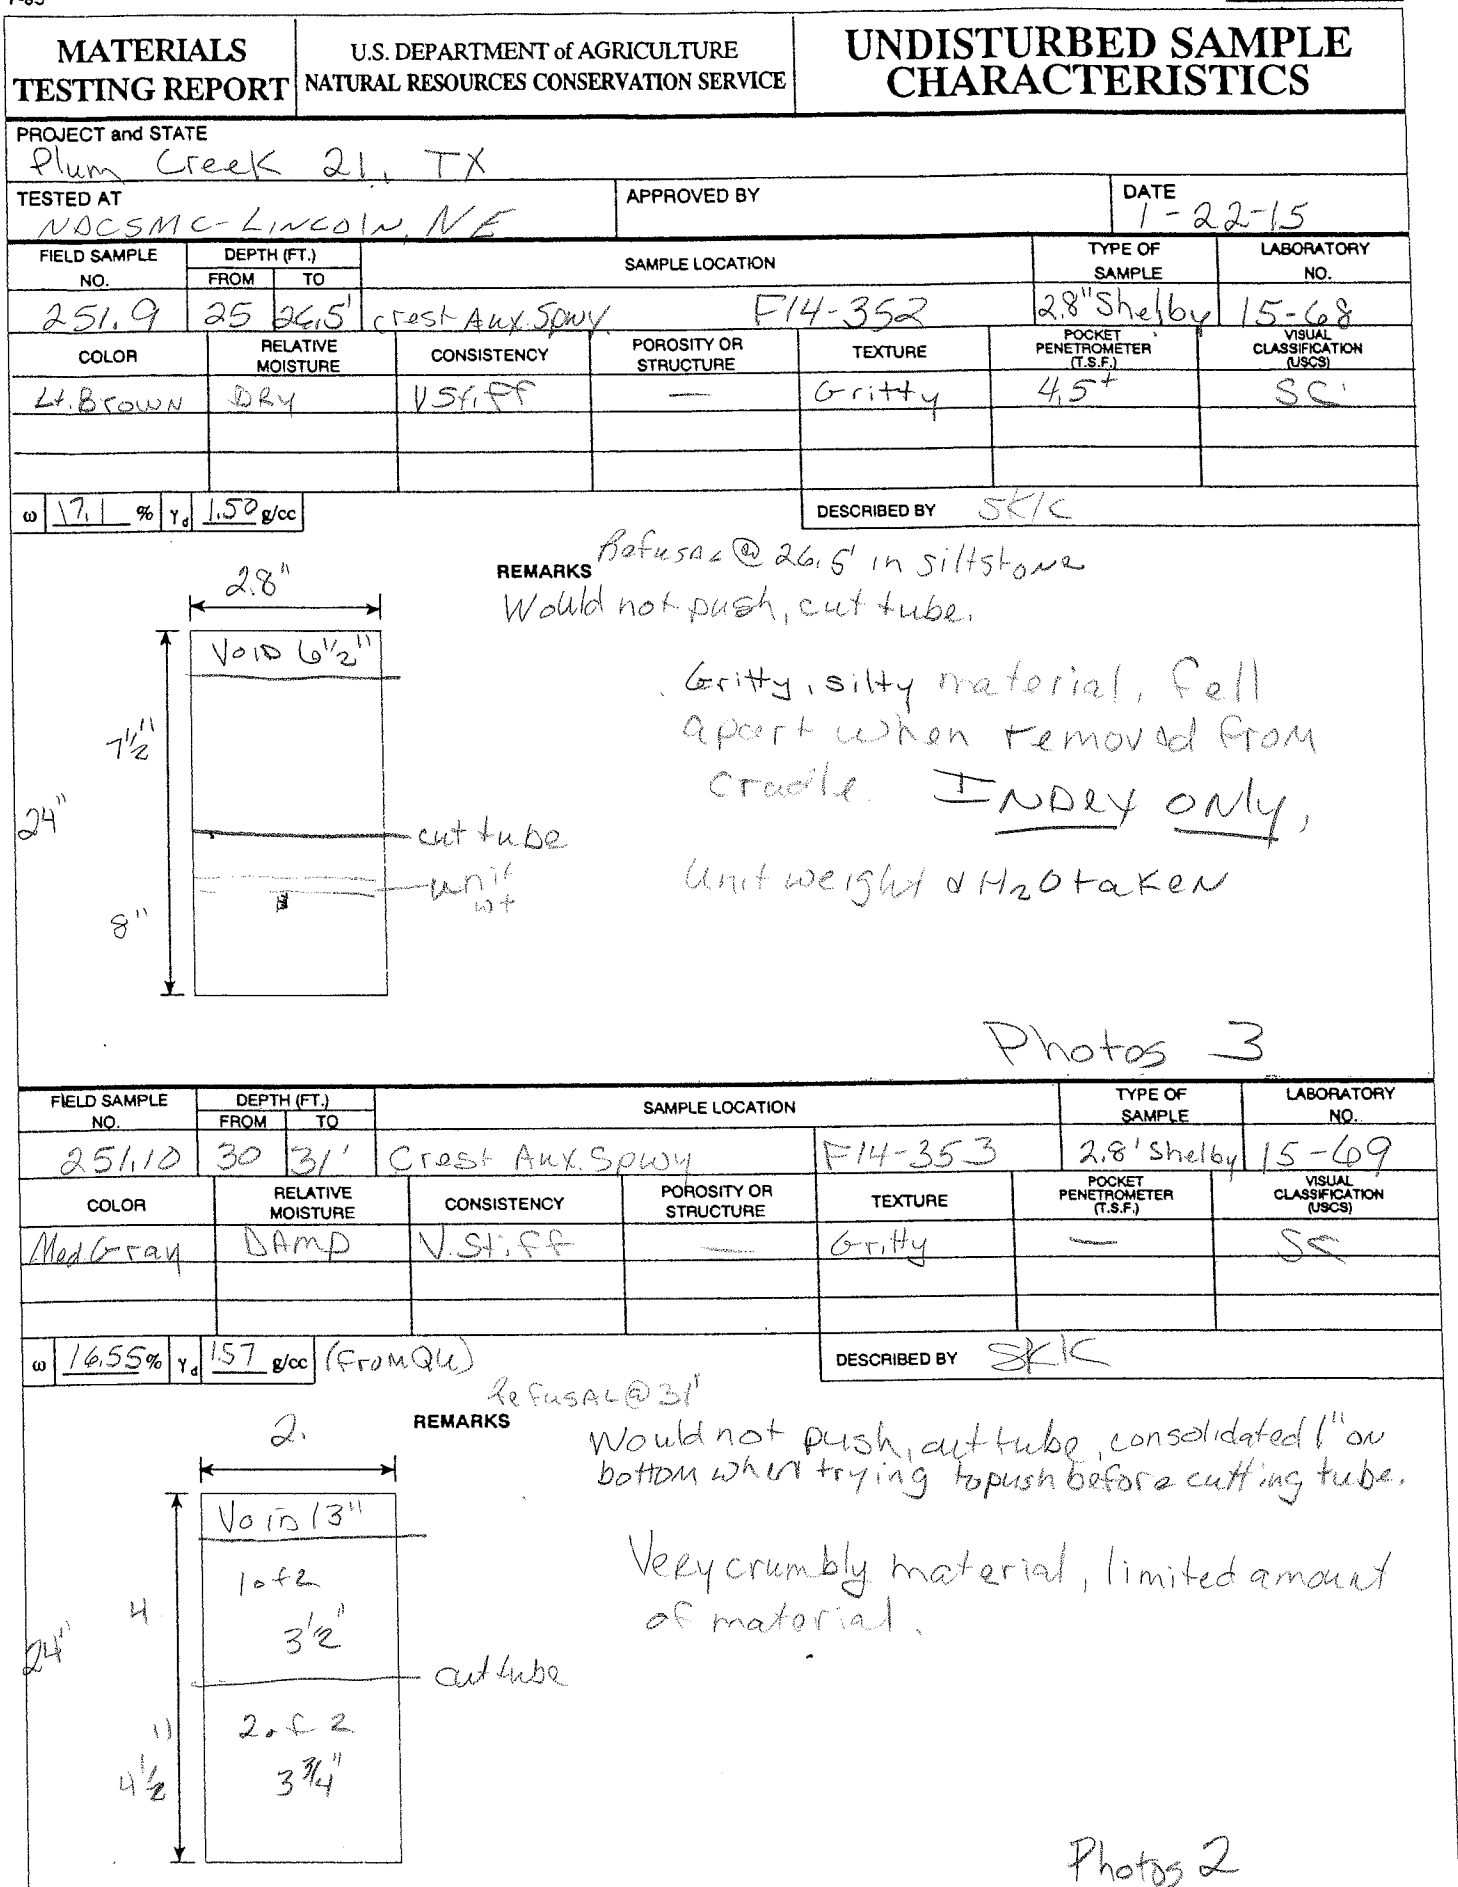 MATERIALS
TESTING REPORT
U.S. DEPARTMENT of AGRICULTURE
NATURAL RESOURCES CONSERVATION SERVICE
UNDISTURBED SAMPLE
CHARACTERISTICS
PROJECT and STATE
Plum Creek 21, TX
TESTED AT
APPROVED BY
DATE
NDCSMC-LINCOLN, NE
1-22-15
FIELD SAMPLE NO.
DEPTH (FT.)
FROM TO
SAMPLE LOCATION
TYPE OF SAMPLE
LABORATORY NO.
251.9 25 26.5' crest Aux. Spwy F14-352 2.8" Shelby 15-68
COLOR
RELATIVE MOISTURE
CONSISTENCY
POROSITY OR STRUCTURE
TEXTURE
POCKET PENETROMETER (T.S.F.)
VISUAL CLASSIFICATION (USCS)
Lt. Brown DRY V Stiff — Gritty 4.5+ SC
ω 17.1 % γd 1.50 g/cc
DESCRIBED BY SKK
REMARKS Refusal @ 26.5' in siltstone
Would not push, cut tube.
2.8"
VOID 6 1/2"
7 1/2"
24"
cut tube
unit wt
8"
Gritty, silty material, fell
apart when removed from
cradle. INDEX ONLY,
Unit weight & H2O taken
Photos 3
FIELD SAMPLE NO.
DEPTH (FT.)
FROM TO
SAMPLE LOCATION
TYPE OF SAMPLE
LABORATORY NO.
251.10 30 31' Crest Aux. Spwy F14-353 2.8' Shelby 15-69
COLOR
RELATIVE MOISTURE
CONSISTENCY
POROSITY OR STRUCTURE
TEXTURE
POCKET PENETROMETER (T.S.F.)
VISUAL CLASSIFICATION (USCS)
Med Gray DAMP V. Stiff — Gritty — SC
ω 16.55 % γd 1.57 g/cc (From QU)
DESCRIBED BY SKK
Refusal @ 31'
REMARKS Would not push, cut tube, consolidated 1" on
bottom when trying to push before cutting tube.
2.
Void 13"
1 of 2
4
3 1/2"
24"
cut tube
2 of 2
4 1/2"
3 3/4"
Very crumbly material, limited amount
of material.
Photos 2